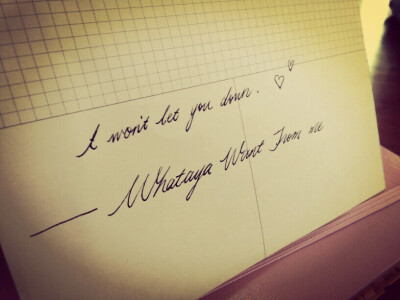 I won't let you down. ♡♡
— Whataya Want From me